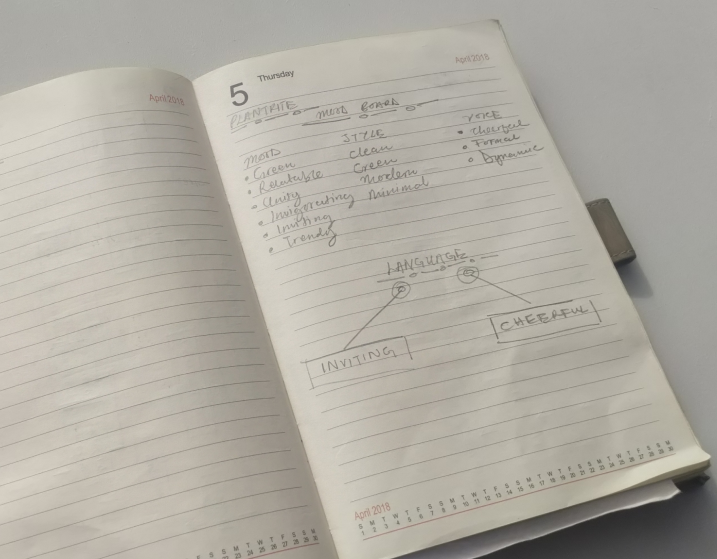 April 2018
5 Thursday
April 2018
PLANTRITE MOOD BOARD
MOOD
• Green
• Relatable
• Unity
• Invigorating
• Inviting
• Trendy
STYLE
Clean
Green
Modern
Minimal
VOICE
• Cheerful
• Formal
• Dynamic
LANGUAGE
INVITING
CHEERFUL
April 2018
S M T W T F S S M T W T F S S M T W T F S S M T W T F S S M
1 2 3 4 5 6 7 8 9 10 11 12 13 14 15 16 17 18 19 20 21 22 23 24 25 26 27 28 29 30